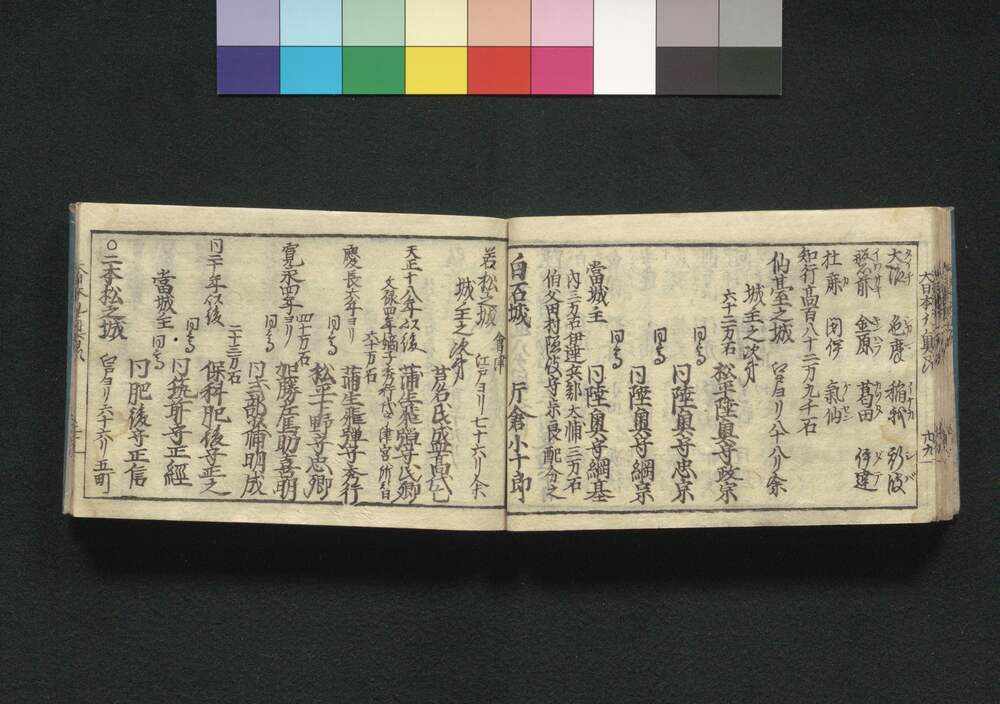 大沼 色麻 稲我 新波
磐前 金原 葛田 伊達
社鹿 閉伊 氣仙
知行高百八十二万九千石
仙臺之城 江戸ヨリ八十八リ余
城主之次才
六十二万石 松平陸奥守政宗
同高 同陸奥守忠宗
同高 同陸奥守綱宗
當城主 同高 同陸奥守綱基
内三万石伊達兵部大浦三万石
伯父田村隠岐守宗良配分之
白石城 片倉小十郎
若松之城 會津 江戸ヨリ七十六リ余
城主之次才
芦名氏盛髙
天正十八年以後 蒲生飛騨守氏卿
文禄四年嫡子秀行代
慶長六年ヨリ 六十万石 蒲生飛騨守秀行
松平下野守忠卿
寛永四年ヨリ 四十万石 加藤左馬助喜明
同高 同式部少輔明成
同二十年以後 二十三万石 保科肥後守正之
當城主 同高 同筑前守正經
同肥後守正信
○二本松之城 江戸ヨリ六十六リ五町